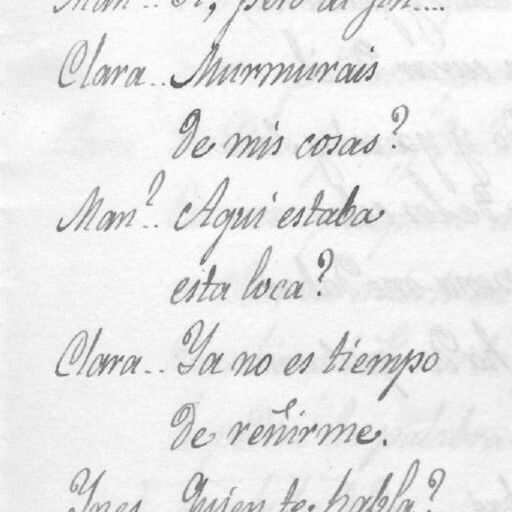 Man.. Si, pero al fin....
Clara.. Murmurais
de mis cosas?
Man? .. Aqui estaba
esta loca?
Clara.. Ya no es tiempo
de reñirme.
Ynes. Quien te habla?